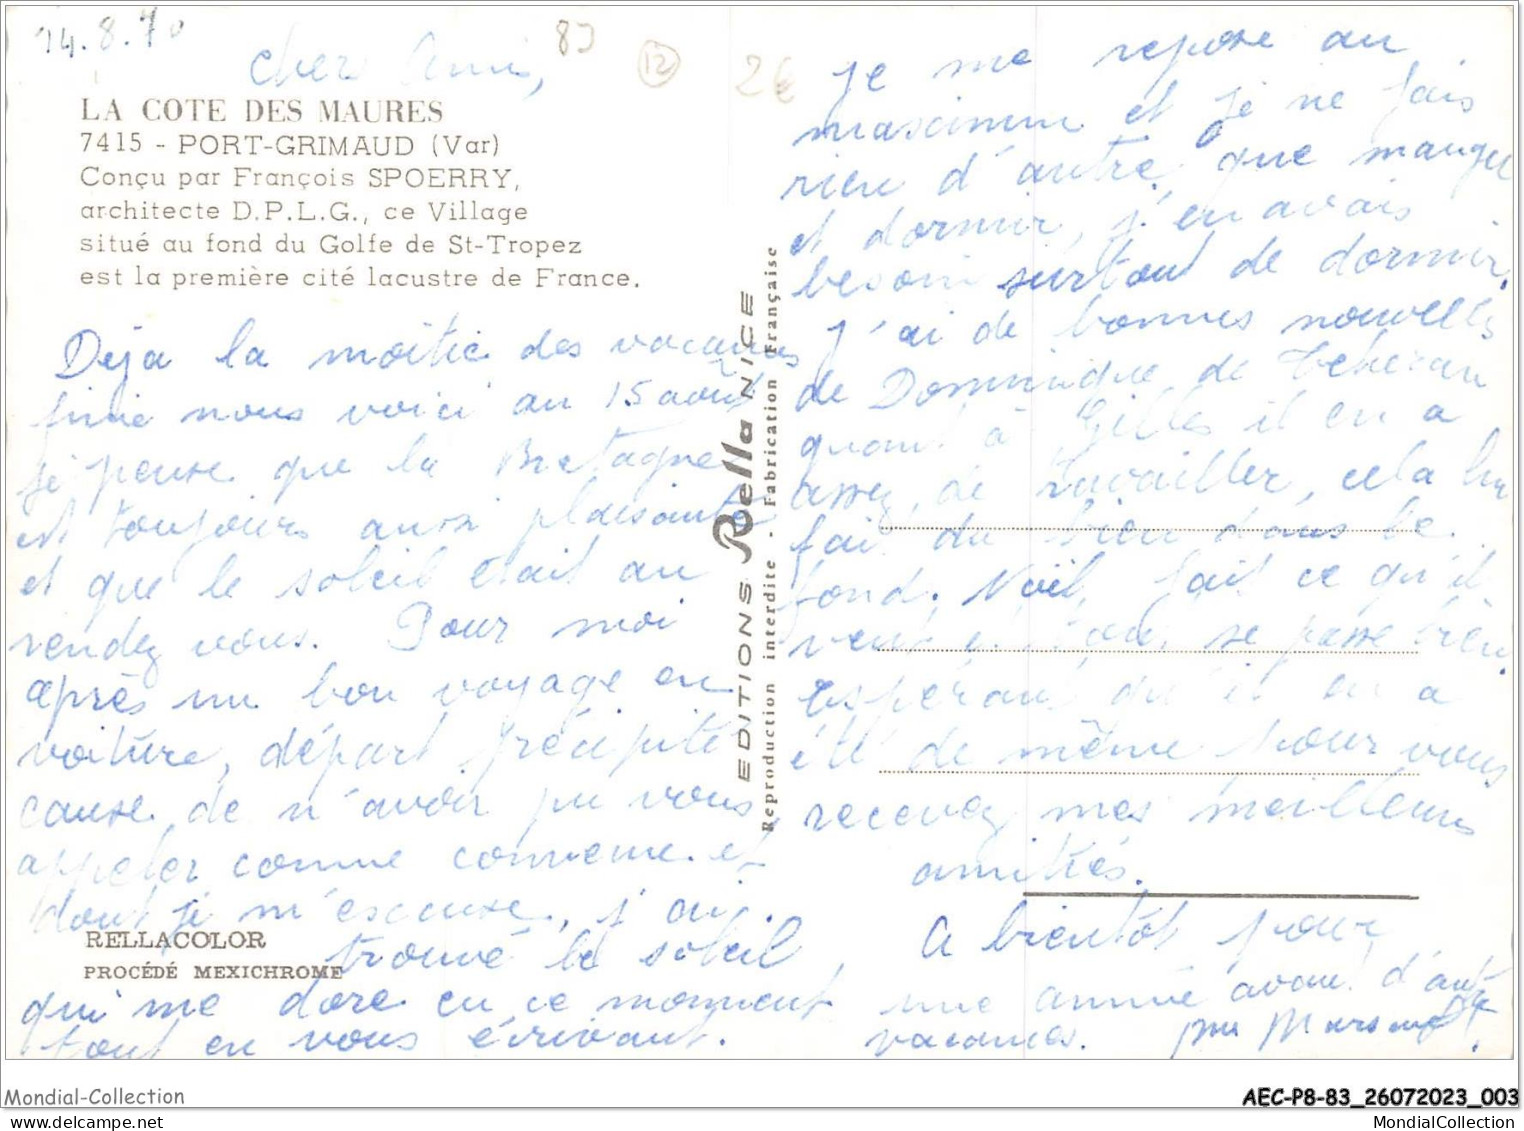 14.8.70
83
12
2€
Chers Amis,
LA COTE DES MAURES
7415 - PORT-GRIMAUD (Var)
Conçu par François SPOERRY,
architecte D.P.L.G., ce Village
situé au fond du Golfe de St-Tropez
est la première cité lacustre de France.
Déja la moitié des vacances
finie nous voici au 15 août
je pense que la Bretagne
est toujours aussi plaisante
et que le soleil était au
rendez vous. Pour moi
après un bon voyage en
voiture, départ précipité
cause de n'avoir pu vous
appeler comme convenue et
dont je m'escuse, j'ai
trouvé le soleil,
qui me dore en ce moment
tout en vous écrivant.
RELLACOLOR
PROCÉDÉ MEXICHROME
EDITIONS Rella NICE
Reproduction interdite - Fabrication Française
je me repose au
mascimum et je ne fais
rien d'autre que manger
et dormir, j'en avais
besoin surtout de dormir.
J'ai de bonnes nouvelles
de Dominique de Teheran
quant à Gilles il en a
assez de travailler, cela lui
fait du bien dans le
fond. Noël fait ce qu'il
veut et tout se passe bien
espérant qu'il en a
été de même pour vous
recevez mes meilleures
amitiés.
A bientôt pour
une année avant d'autre
vacances.
Mondial-Collection
AEC-P8-83_26072023_003
MondialCollection
www.delcampe.net